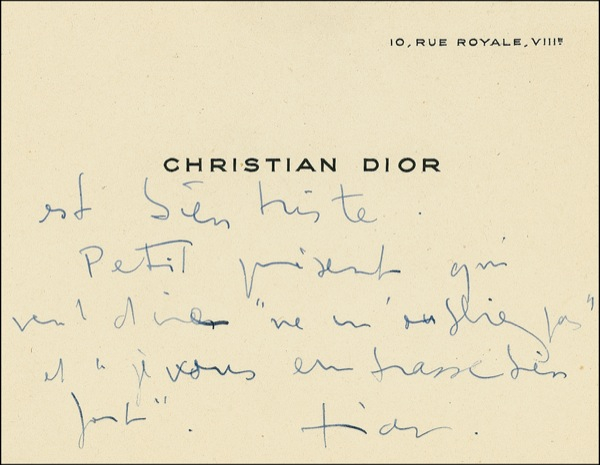 10, RUE ROYALE, VIIIE
CHRISTIAN DIOR
est bien triste.
Petit présent qui
veut dire "ne m'oubliez pas"
et "je vous embrasse bien
fort". tian.